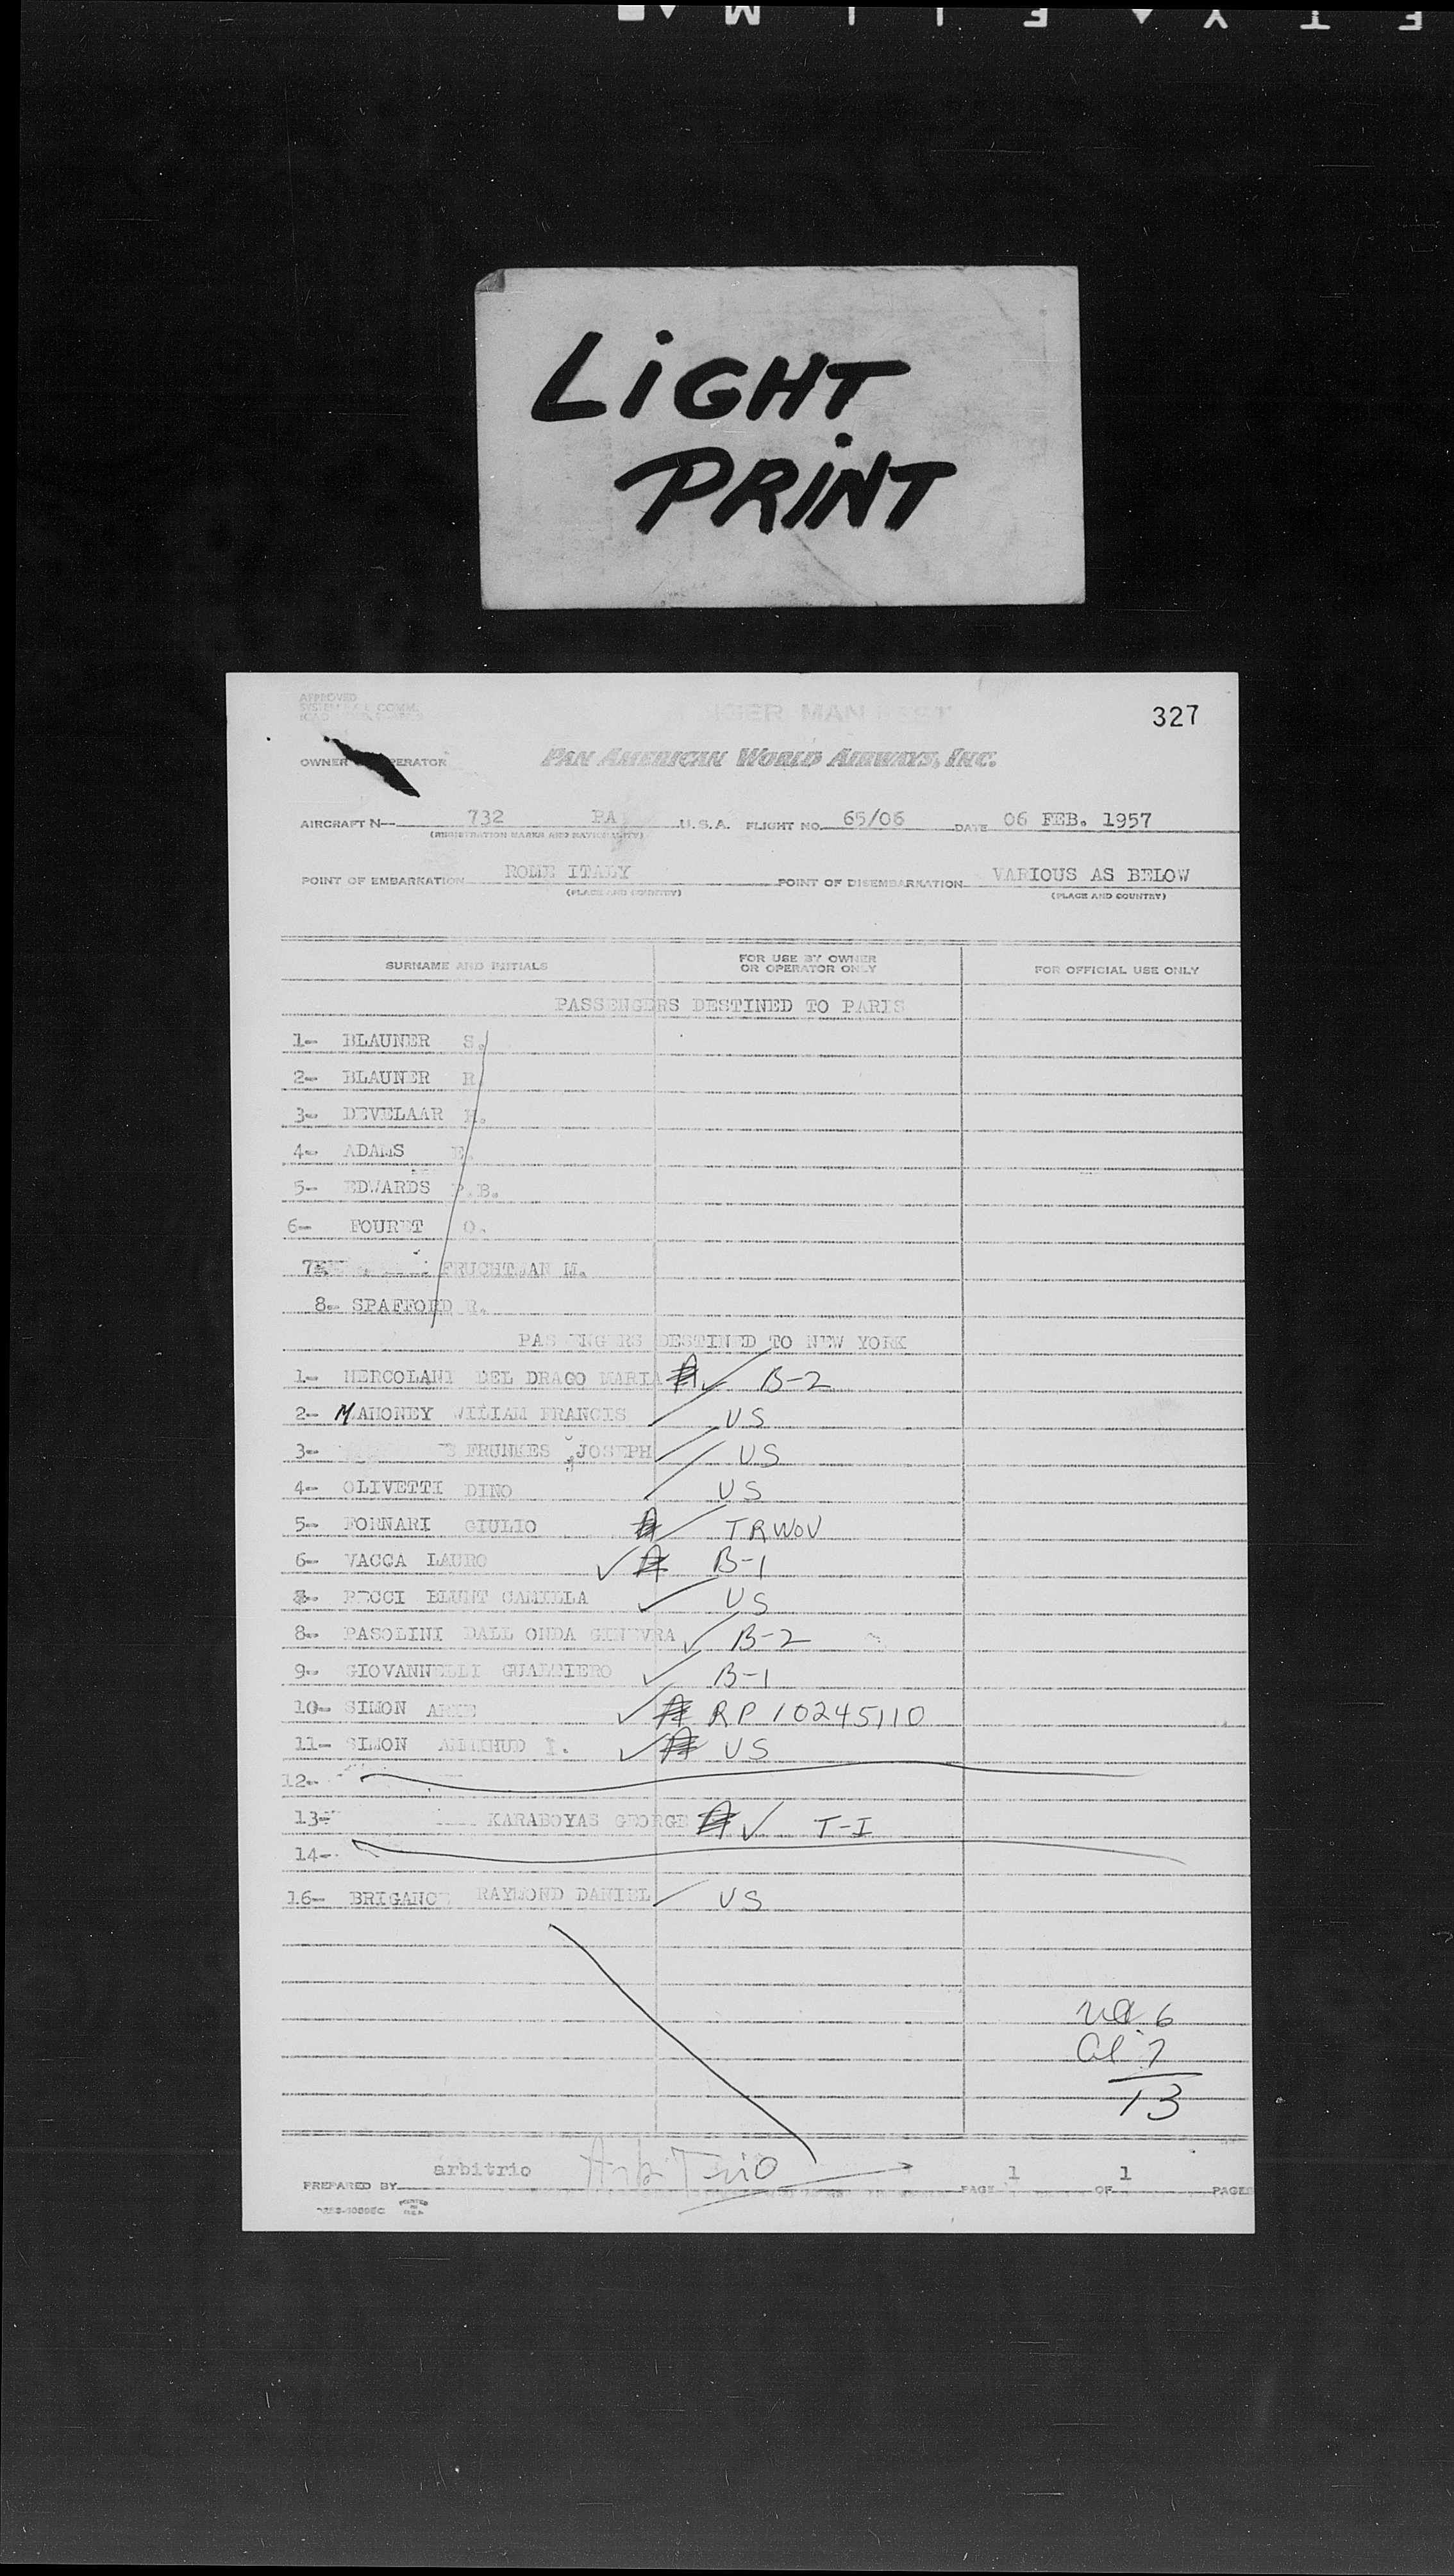 LiGHT
PRiNT
327
APPROVED
OWNER OPERATOR
PAN AMERICAN WORLD AIRWAYS, INC.
AIRCRAFT N— 732 PA U.S.A. FLIGHT NO. 65/06 DATE 06 FEB. 1957
(REGISTRATION MARKS AND NATIONALITY)
POINT OF EMBARKATION ROME ITALY POINT OF DISEMBARKATION VARIOUS AS BELOW
(PLACE AND COUNTRY) (PLACE AND COUNTRY)
SURNAME AND INITIALS FOR USE BY OWNER OR OPERATOR ONLY FOR OFFICIAL USE ONLY
PASSENGERS DESTINED TO PARIS
1- BLAUNER S.
2- BLAUNER R.
3- DEVELAAR
4- ADAMS E.
5- EDWARDS P.B.
6- FOURET O.
7 FRUCHTMAN M.
8- SPAFFORD R.
PASSENGERS DESTINED TO NEW YORK
1- MERCOLANI DEL DRAGO MARIA A B-2
2- MAHONEY WILIAM FRANCIS US
3- FRUNKES JOSEPH US
4- OLIVETTI DINO US
5- FORNARI GIULIO A TRWOV
6- VACCA LAURO A B-1
7- PECCI BLUNT CAMILLA US
8- PASOLINI DALL ONDA GINEVRA B-2
9- GIOVANNELLI GUALTIERO B-1
10- SIMON A RP 10245110
11- SIMON A US
12-
13- KARABOYAS GEORGE A T-I
14-
16- BRIGANCE RAYMOND DANIEL US
6
al 7
13
arbitrio Arbitrio
PREPARED BY PAGE 1 OF 1 PAGES